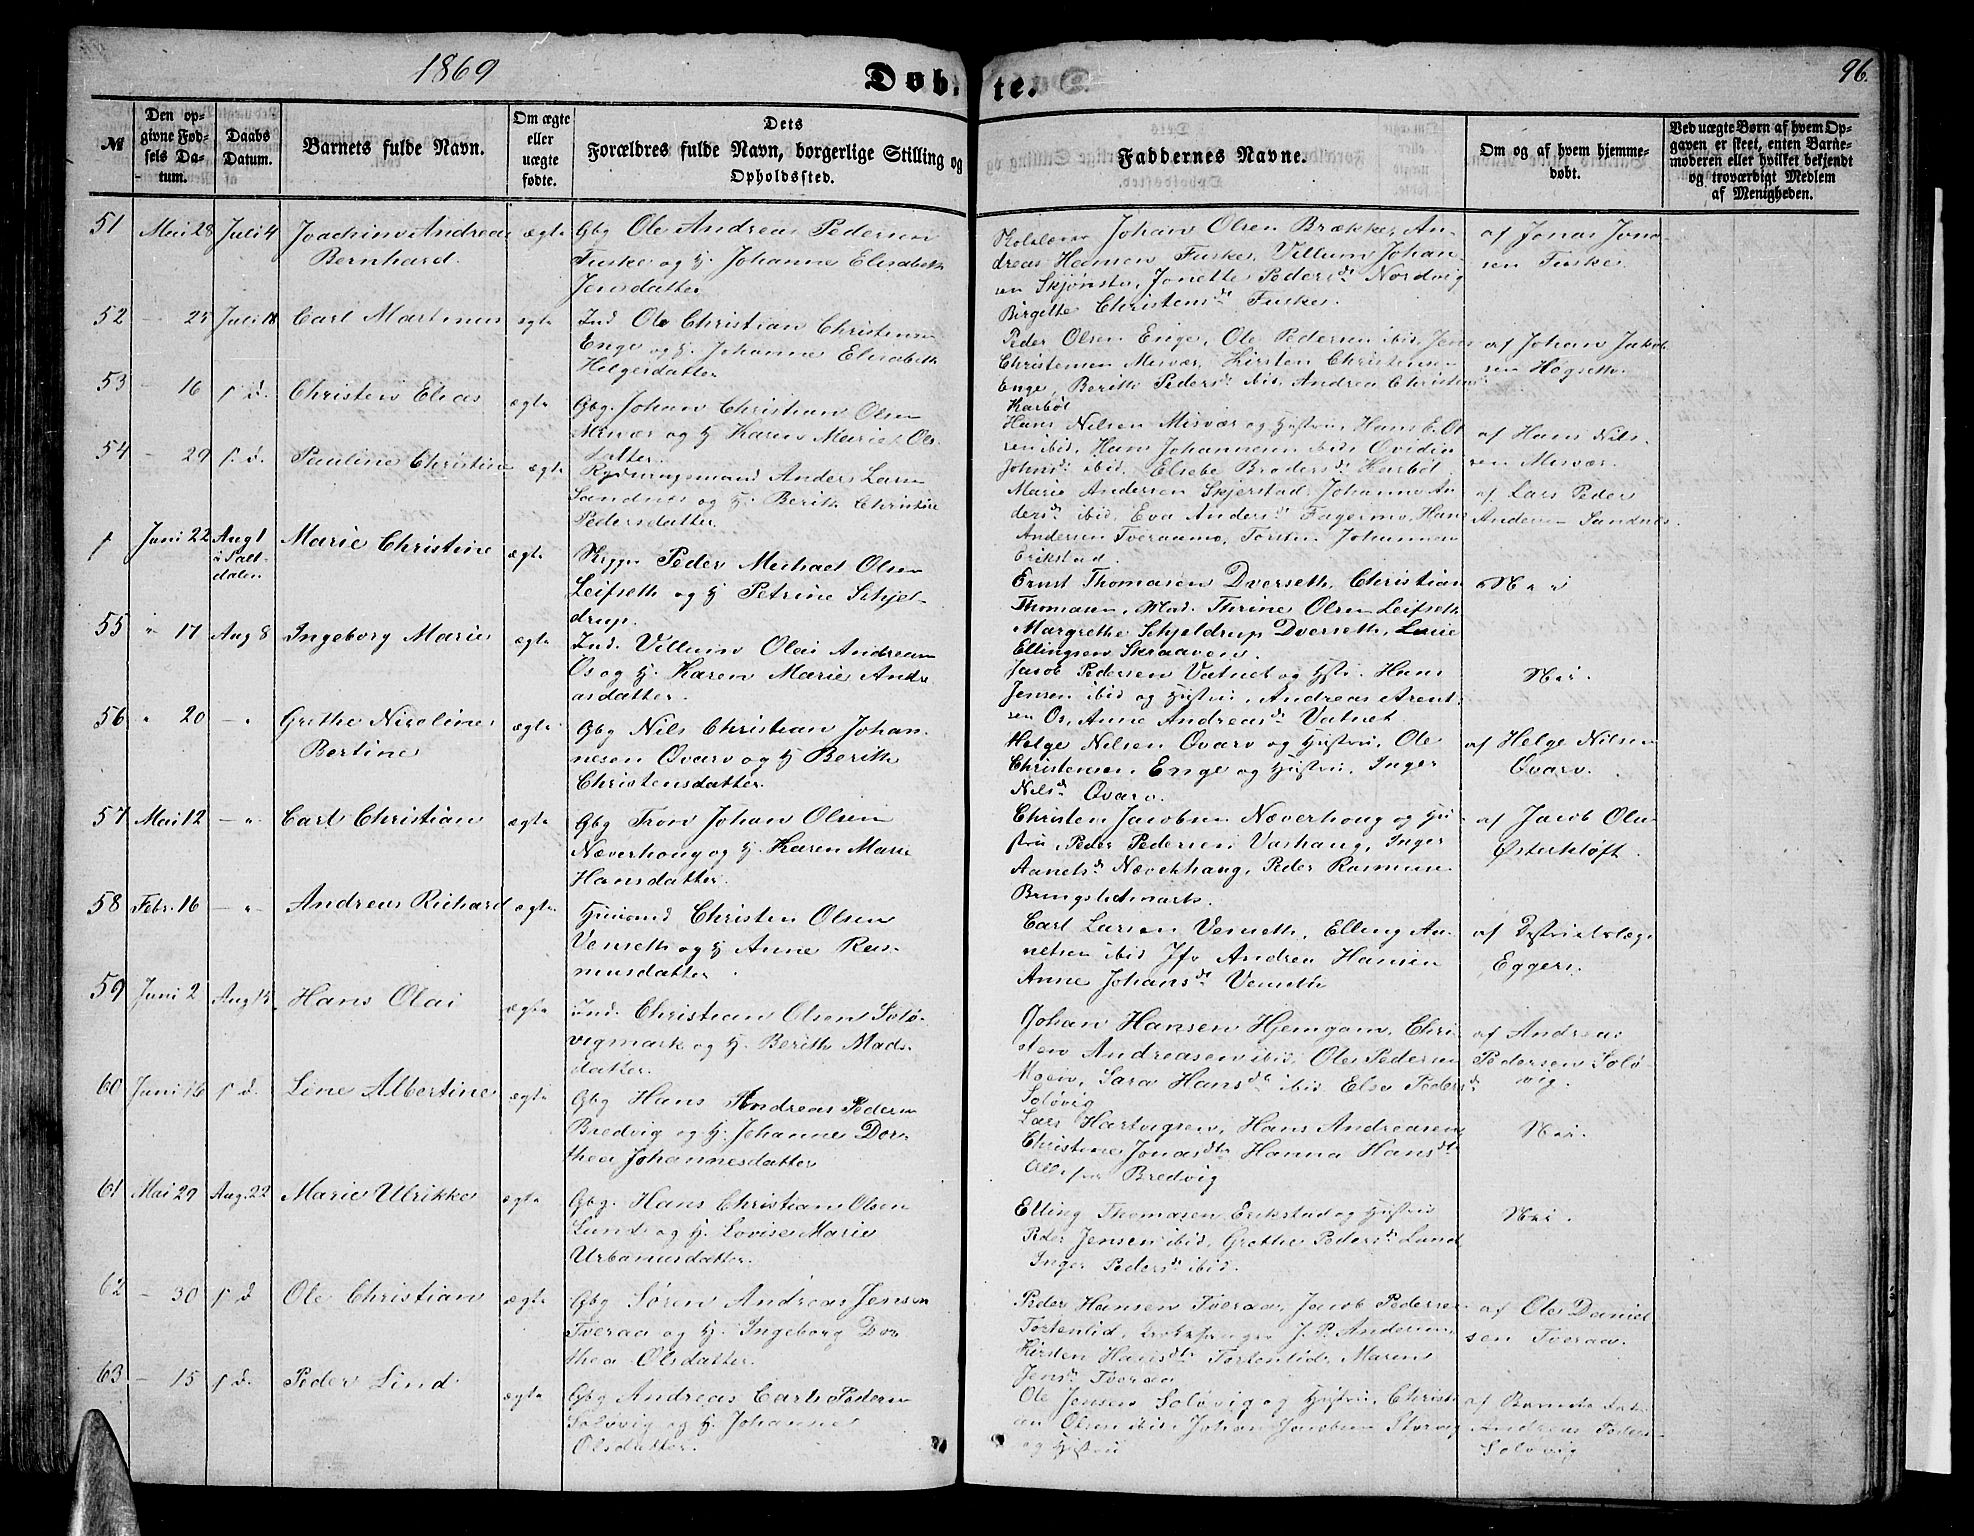 1869
Døbte.
96.
№
Den opgivne Fødsels Datum.
Daabs Datum.
Barnets fulde Navn.
Om ægte eller uægte fødte.
Dets Forældres fulde Navn, borgerlige Stilling og Opholdssted.
Faddernes Navne.
Om og af hvem hjemmedøbt.
Ved uægte Børn af hvem Opgaven er skeet, enten Barnemoderen eller hvilket bekjendt og troværdigt Medlem af Menigheden.
51 Mai 28 Juli 4 Joachim Andreas Bernhard ægte
Gbg Ole Andreas Pedersen
Fuske og H. Johanne Elisabeth
Jensdatter
Johan Olsen Brække, An-
dreas Hansen Fuske, Villum Johan-
sen Skjønsto, Jonette Pedersdt Nordvig
Birgitte Christensdt Fuske.
af Jonas Jona-
sen Fuske
52 – 25 Juli 18 Carl Martinus ægte
Ind Ole Christian Christensen
Enge og H. Johanna Elisabeth
Helgesdatter
Peder Olsen Enge, Ole Pedersen ibid, Jens
Christensen Misvær, Kirsten Christensen
Enge, Berith Pedersdt ibid, Andrea Christensdt
Karbøl
af Johan Jakob
sen Høgseth
53 – 16 s. d. Christen Elias ægte
Gbg. Johan Christian Olsen
Misvær og H Karen Marie Ols-
datter.
Hans Nilsen Misvær og Hustru, Hans E. Ol
sen ibid, Hans Johannesen ibid, Ovidia
Johnsdt ibid, Elsebe Brodersdt Karbøl
af Hans Nils-
sen Misvær.
54 – 29 s. d. Pauline Christine ægte
Rydningsmand Anders Larsen
Sandnes og H. Berith Christine
Pedersdatter.
Marie Andersen Skjerstad, Johanna An
dersdt ibid, Eva Andersdt Fagermo, Hans
Andersen Tveraamo, Torsten Johannesen
Erikstad
af Lars Peder
Andersen Sandnes.
1 Juni 22 Aug 1 i Saltdalen Marie Christine ægte
Skipper Peder Michael Olsen
Leifseth og H Petrine Schjel-
drup.
Ernst Thomasen Dverseth, Christian
Thomasen, Mad. Thrine Olsen Leifseth
Margrethe Schjeldrup Dverseth, Lucie
Ellingsen Skraaven.
Nei
55 " 17 Aug 8 Ingeborg Marie ægte
Ind. Villum Olai Andreasen
Os og H. Karen Marie Andre
asdatter.
Jacob Pedersen Vatnet og Hstr. Hans
Jensen ibid og Hustru, Andreas Arent-
sen Os, Anne Andreasdt Vatnet.
Nei.
56 " 20 – " Grethe Nicoline Bertine ægte
Gbg Nils Christian Johan-
nesen Qvarv og H Berith
Christensdatter.
Helge Nilsen Qvarv og Hustru, Ole
Christensen Enge og Hustru, Inger
Nilsdt Qvarv.
af Helge Nilsen
Qvarv.
57 Mai 12 – " Carl Christian ægte
Gbg Tron Johan Olsen
Næverhoug og H. Karen Marie
Hansdatter.
Christen Jacobsen Næverhoug og Hu-
stru, Peder Pedersen Vashaug, Inger
Aanetsdt Næverhaug, Peder Rasmusen
Bringslidmark.
af Jacob Ols.
Østerkløft.
58 Febr. 16 – " Andreas Richard ægte.
Husmand Christen Olsen
Venseth og H Anne Ras-
musdatter
Carl Larsen Venseth, Elling An-
netsen ibid Jfr Andrea Hansen
Anne Johansdt Venseth
af Distriktslæge
Eggers.
59 Juni 2 Aug 15 Hans Olai ægte
Ind. Christian Olsen Solø-
vigmark og H. Berith Mads-
datter.
Johan Hansen Hjemgam, Chri-
sten Andreasen ibid, Ole Pedersen
Moen, Sara Hansdt ibid Else Pedersdt
Soløvig
af Andreas
Pedersen Solø-
vig.
60 Juni 16 s d. Line Albertine ægte
Gbg Hans Andreas Pedersen
Bredvig og H. Johanne Doro
thea Johannesdatter
Lars Hartvigsen, Hans Andreasen
Christine Jonasdt Hanna Hansdt
Alle fra Bredvig
Nei.
61 Mai 29 Aug. 22 Marie Ulrikke ægte
Gbg. Hans Christian Olsen
Lund og H. Lovise Marie
Urbanusdatter.
Elling Thomasen Erikstad og Hustru
Peder Jensen ibid, Grethe Pedersdt Lund
Inger Pedersdt ibid.
Nei.
62 – 30 s d Ole Christian ægte
Gbg Søren Andreas Jensen
Tveraa og H. Ingeborg Doro
thea Olsdatter.
Peder Hansen Tveraa, Jacob Pedersen
Tortenlid, Kirkesanger J. P. Andersen
Kirsten Hansdt Tortenlid, Maren
Jensdt Tveraa
af Ole Daniel
sen Tveraa.
63 – 15 s d. Peder Lind ægte
Gbg Andreas Carl Pedersen
Soløvig og H. Johanne
Olsdatter.
Ole Jensen Soløvig og Hustru, Christi
an Olsen ibid, Johan Jacobsen Storvig
og Hustru
af Barnets Fader
Andreas Peders-
Soløvig